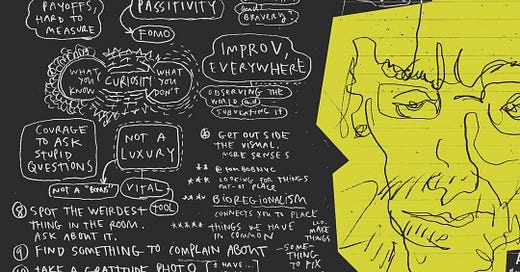 PAYOFFS,
HARD TO
MEASURE
PASSITIVITY
FOMO
and
BRAVERY
WHAT
YOU
KNOW
CURIOSITY
WHAT
YOU
DON'T
IMPROV,
EVERYWHERE
OBSERVING THE
WORLD and
SUBVERTING IT
COURAGE
TO ASK
STUPID
QUESTIONS
NOT A
LUXURY
NOT A "BONUS"
VITAL
TOOL
GET OUTSIDE
THE VISUAL.
MORE SENSES
LOOKING FOR THINGS
OUT OF PLACE
BIOREGIONALISM
CONNECTS YOU TO PLACE
THINGS WE HAVE
IN COMMON
THINGS
⑧ SPOT THE WEIRDEST
THING IN THE ROOM.
ASK ABOUT IT.
⑨ FIND SOMETHING TO COMPLAIN ABOUT
—SOME-
THING
TO FIX
TAKE A GRATITUDE PHOTO
I HAVE...